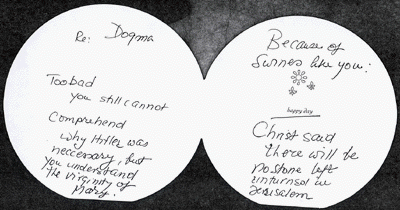 Re: Dogma
Too bad
you still cannot
Comprehend
why Hitler was
neccerary, but
you understand
the virginity of
Mary.
Because of
Swines like you:
happy day
Christ said
there will be
no stone left
unturned in
Jerusalem